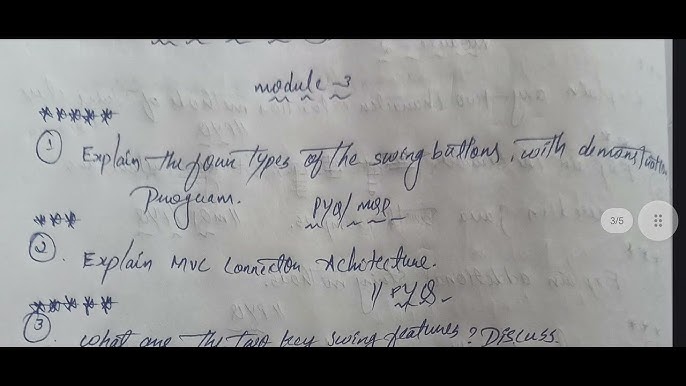 module-3
*****
① Explain the four types of the swing buttons, with demonstration
Program.
PYQ/MQP
***
②. Explain MVC Connection Achitecture.
// PYQ
*****
③ what are the two key swing features? Discuss.
3/5